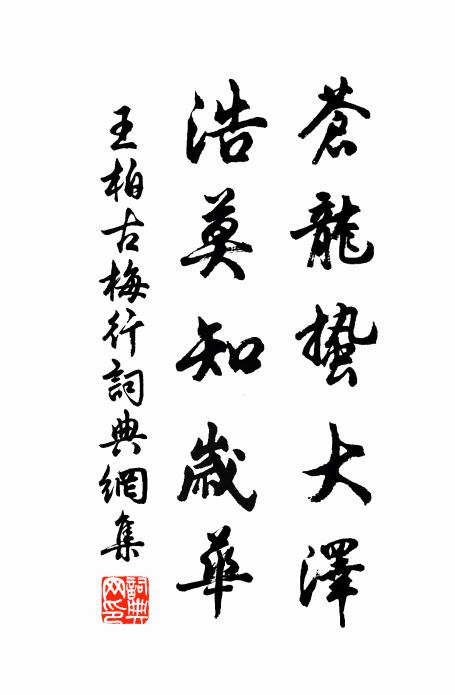 蒼龍蟄大澤
浩莫知歲華
王柏古梅行詞典網集
詞典